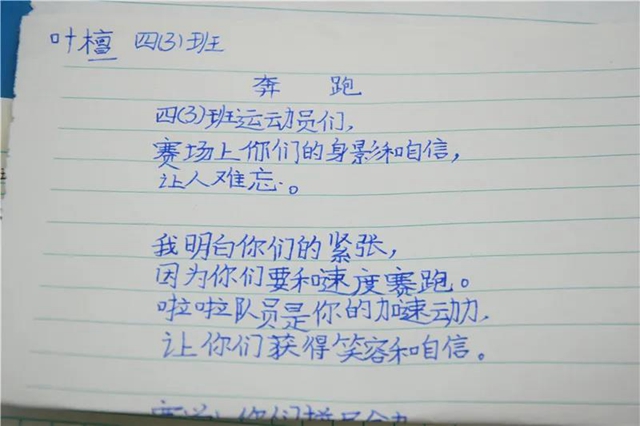 叶檀 四(3)班
奔 跑
四(3)班运动员们,
赛场上你们的身影和自信,
让人难忘。
我明白你们的紧张,
因为你们要和速度赛跑。
啦啦队员是你的加速动力,
让你们获得笑容和自信。
你们